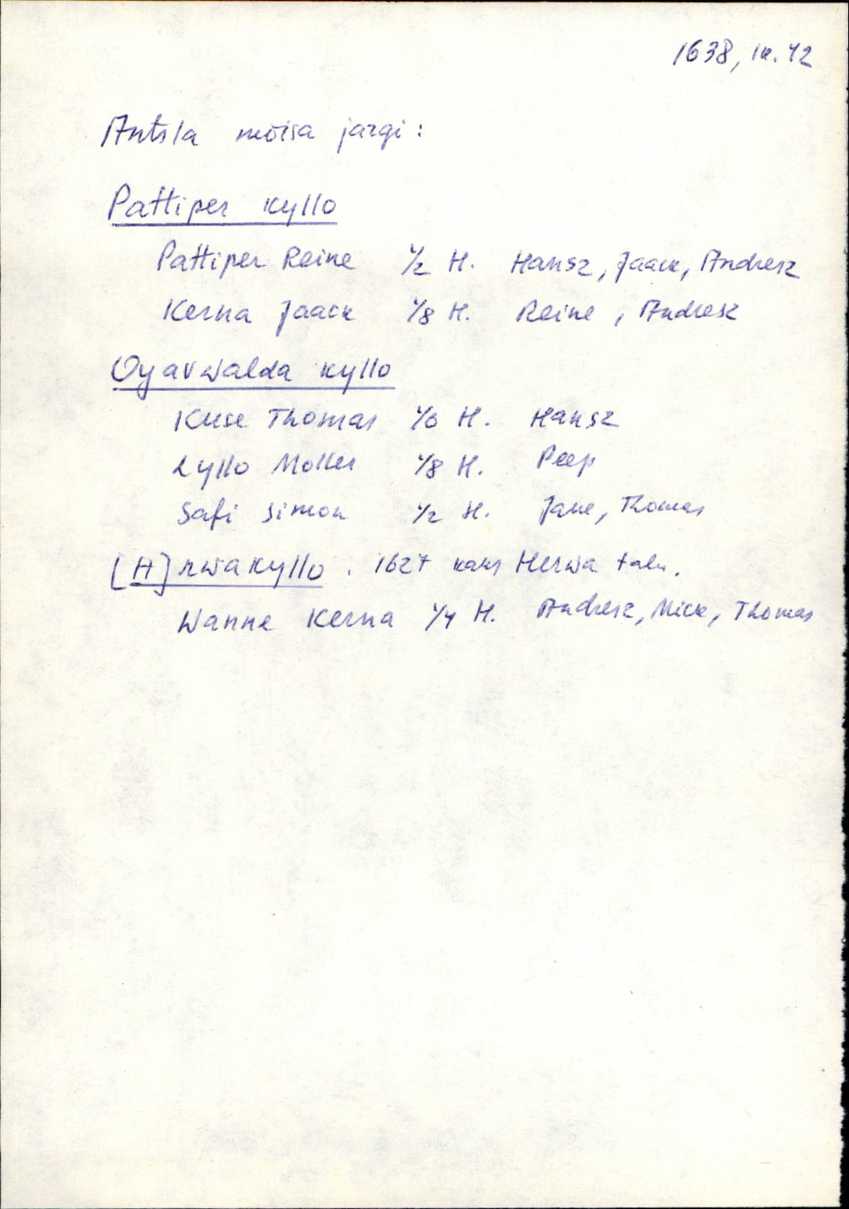 1638, lk. 42
Antsla mõisa järgi:
Pattiper kyllo
Pattiper Reine 1/2 H. Hansz, Jaack, Andresz
Kerna Jaack 1/8 H. Reine, Andresz
Oyarwalda kyllo
Kuse Thomas H. Hansz
Lyllo Moller 1/8 H. Peep
Safi Simon 1/2 H. Jane, Thomas
[H]rwakyllo. 1627 kaks Herwa talu.
Wanne Kerna 1/4 H. Andresz, Mick, Thomas